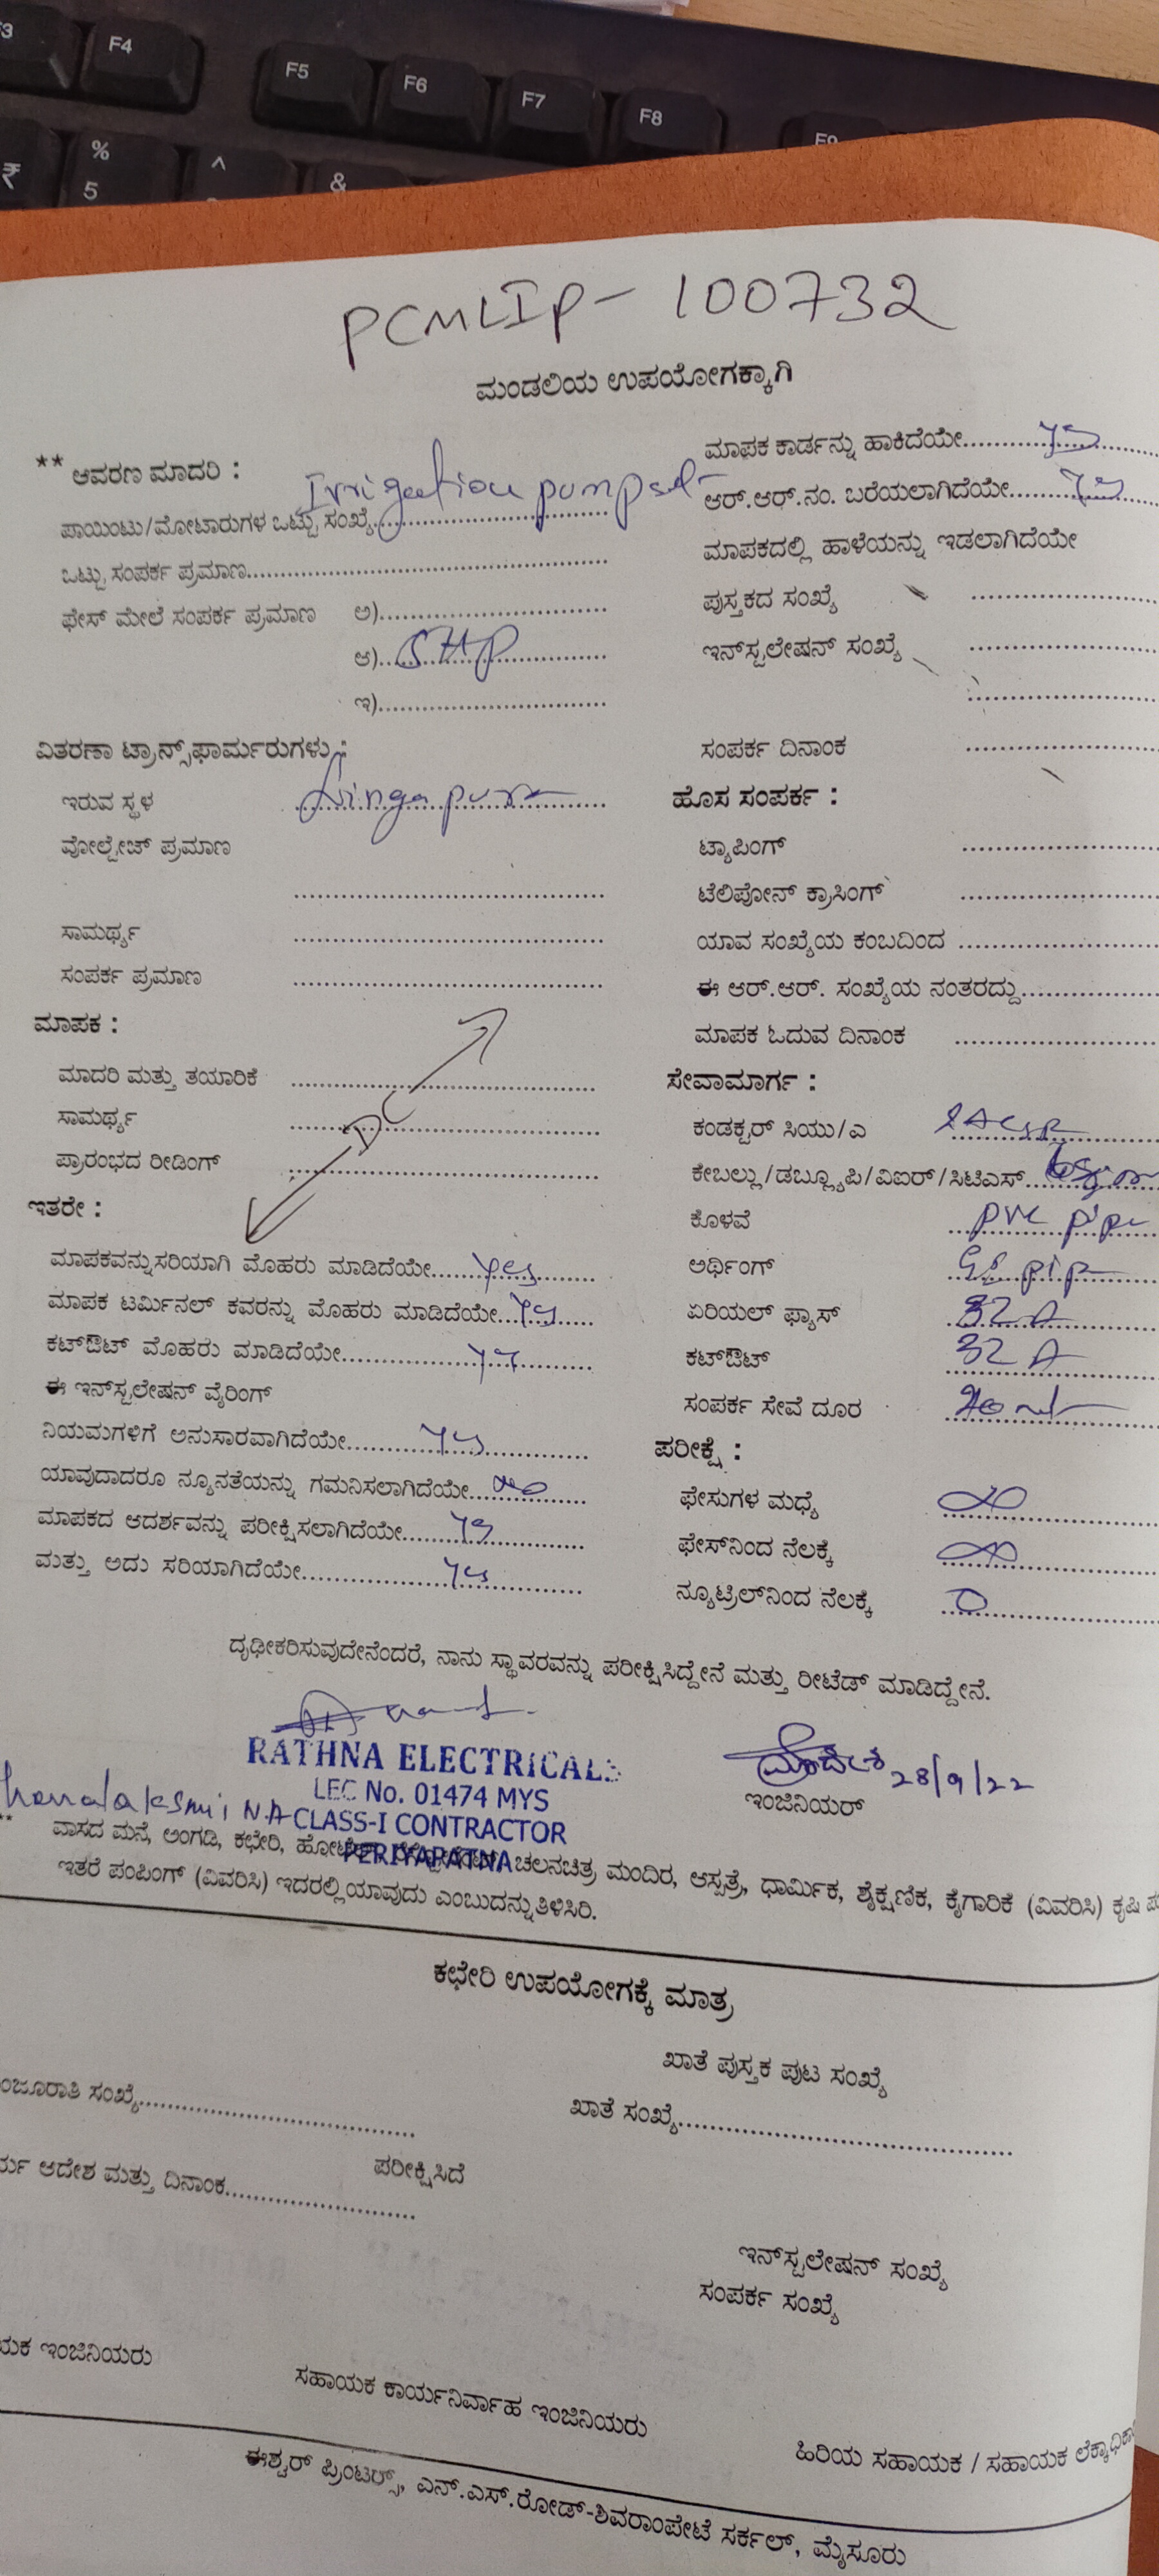 F4
F5
F6
F7
F8
F9
₹
%
5
^
&
PCMLIP- 100732
ಮಂಡಲಿಯ ಉಪಯೋಗಕ್ಕಾಗಿ
** ಆವರಣ ಮಾದರಿ : Irrigation pumpset
ಪಾಯಿಂಟು/ಮೋಟಾರುಗಳ ಒಟ್ಟು ಸಂಖ್ಯೆ
ಒಟ್ಟು ಸಂಪರ್ಕ ಪ್ರಮಾಣ
ಫೇಸ್ ಮೇಲೆ ಸಂಪರ್ಕ ಪ್ರಮಾಣ ಅ)
ಆ) 5HP
ಇ)
ವಿತರಣಾ ಟ್ರಾನ್ಸ್‌ಫಾರ್ಮರುಗಳು :
ಇರುವ ಸ್ಥಳ Lingapura
ವೋಲ್ಟೇಜ್ ಪ್ರಮಾಣ
ಸಾಮರ್ಥ್ಯ
ಸಂಪರ್ಕ ಪ್ರಮಾಣ
ಮಾಪಕ :
ಮಾದರಿ ಮತ್ತು ತಯಾರಿಕೆ
ಸಾಮರ್ಥ್ಯ DC
ಪ್ರಾರಂಭದ ರೀಡಿಂಗ್
ಇತರೇ :
ಮಾಪಕವನ್ನು ಸರಿಯಾಗಿ ಮೊಹರು ಮಾಡಿದೆಯೇ yes
ಮಾಪಕ ಟರ್ಮಿನಲ್ ಕವರನ್ನು ಮೊಹರು ಮಾಡಿದೆಯೇ yes
ಕಟ್‌ಔಟ್ ಮೊಹರು ಮಾಡಿದೆಯೇ yes
ಈ ಇನ್‌ಸ್ಟಲೇಷನ್ ವೈರಿಂಗ್
ನಿಯಮಗಳಿಗೆ ಅನುಸಾರವಾಗಿದೆಯೇ yes
ಯಾವುದಾದರೂ ನ್ಯೂನತೆಯನ್ನು ಗಮನಿಸಲಾಗಿದೆಯೇ no
ಮಾಪಕದ ಆದರ್ಶವನ್ನು ಪರೀಕ್ಷಿಸಲಾಗಿದೆಯೇ yes
ಮತ್ತು ಅದು ಸರಿಯಾಗಿದೆಯೇ yes
ಮಾಪಕ ಕಾರ್ಡನ್ನು ಹಾಕಿದೆಯೇ yes
ಆರ್.ಆರ್.ನಂ. ಬರೆಯಲಾಗಿದೆಯೇ yes
ಮಾಪಕದಲ್ಲಿ ಹಾಳೆಯನ್ನು ಇಡಲಾಗಿದೆಯೇ
ಪುಸ್ತಕದ ಸಂಖ್ಯೆ
ಇನ್‌ಸ್ಟಲೇಷನ್ ಸಂಖ್ಯೆ
ಸಂಪರ್ಕ ದಿನಾಂಕ
ಹೊಸ ಸಂಪರ್ಕ :
ಟ್ಯಾಪಿಂಗ್
ಟೆಲಿಪೋನ್ ಕ್ರಾಸಿಂಗ್
ಯಾವ ಸಂಖ್ಯೆಯ ಕಂಬದಿಂದ
ಈ ಆರ್.ಆರ್. ಸಂಖ್ಯೆಯ ನಂತರದ್ದು
ಮಾಪಕ ಓದುವ ದಿನಾಂಕ
ಸೇವಾಮಾರ್ಗ :
ಕಂಡಕ್ಟರ್ ಸಿಯು/ಎ
ಕೇಬಲ್ಲು/ಡಬ್ಲ್ಯೂಪಿ/ವಿಐರ್/ಸಿಟಿಎಸ್
ಕೊಳವೆ PVC pipe
ಅರ್ಥಿಂಗ್ GI pipe
ಏರಿಯಲ್ ಫ್ಯಾಸ್ 32 A
ಕಟ್‌ಔಟ್ 32 A
ಸಂಪರ್ಕ ಸೇವೆ ದೂರ
ಪರೀಕ್ಷೆ :
ಫೇಸುಗಳ ಮಧ್ಯೆ ∞
ಫೇಸ್‌ನಿಂದ ನೆಲಕ್ಕೆ ∞
ನ್ಯೂಟ್ರಿಲ್‌ನಿಂದ ನೆಲಕ್ಕೆ 0
ದೃಢೀಕರಿಸುವುದೇನೆಂದರೆ, ನಾನು ಸ್ಥಾವರವನ್ನು ಪರೀಕ್ಷಿಸಿದ್ದೇನೆ ಮತ್ತು ರೀಟೆಡ್ ಮಾಡಿದ್ದೇನೆ.
RATHNA ELECTRICALS
LEC No. 01474 MYS
N.A CLASS-I CONTRACTOR
PERIYAPATNA
28/9/22
ಇಂಜಿನಿಯರ್
** ವಾಸದ ಮನೆ, ಅಂಗಡಿ, ಕಛೇರಿ, ಚಲನಚಿತ್ರ ಮಂದಿರ, ಆಸ್ಪತ್ರೆ, ಧಾರ್ಮಿಕ, ಶೈಕ್ಷಣಿಕ, ಕೈಗಾರಿಕೆ (ವಿವರಿಸಿ) ಕೃಷಿ
ಇತರೆ ಪಂಪಿಂಗ್ (ವಿವರಿಸಿ) ಇದರಲ್ಲಿ ಯಾವುದು ಎಂಬುದನ್ನು ತಿಳಿಸಿರಿ.
ಕಛೇರಿ ಉಪಯೋಗಕ್ಕೆ ಮಾತ್ರ
ಖಾತೆ ಪುಸ್ತಕ ಪುಟ ಸಂಖ್ಯೆ
ಂಜೂರಾತಿ ಸಂಖ್ಯೆ
ಖಾತೆ ಸಂಖ್ಯೆ
ಆದೇಶ ಮತ್ತು ದಿನಾಂಕ
ಪರೀಕ್ಷಿಸಿದೆ
ಇನ್‌ಸ್ಟಲೇಷನ್ ಸಂಖ್ಯೆ
ಸಂಪರ್ಕ ಸಂಖ್ಯೆ
ಯಕ ಇಂಜಿನಿಯರು
ಸಹಾಯಕ ಕಾರ್ಯನಿರ್ವಾಹ ಇಂಜಿನಿಯರು
ಹಿರಿಯ ಸಹಾಯಕ / ಸಹಾಯಕ ಲೆಕ್ಕಾಧಿಕಾ
ಈಶ್ವರ್ ಪ್ರಿಂಟರ್ಸ್, ಎನ್.ಎಸ್.ರೋಡ್-ಶಿವರಾಂಪೇಟೆ ಸರ್ಕಲ್, ಮೈಸೂರು